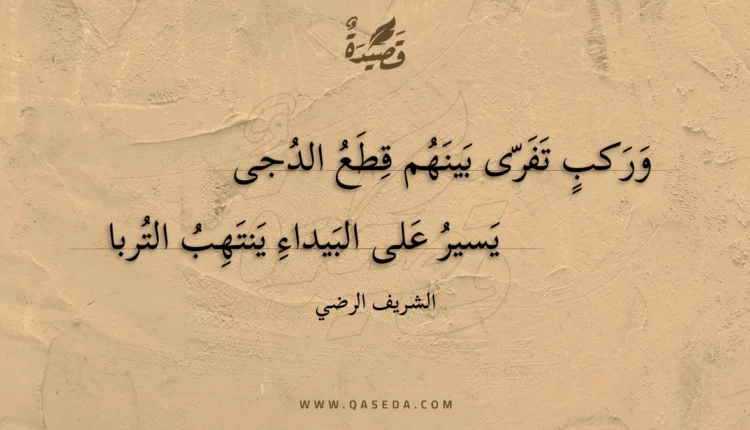 قَصِيدَةٌ
وَرَكبٍ تَفَرّى بَينَهُم قِطَعُ الدُجى
يَسيرُ عَلى البَيداءِ يَنتَهِبُ التُربا
الشريف الرضي
WWW.QASEDA.COM